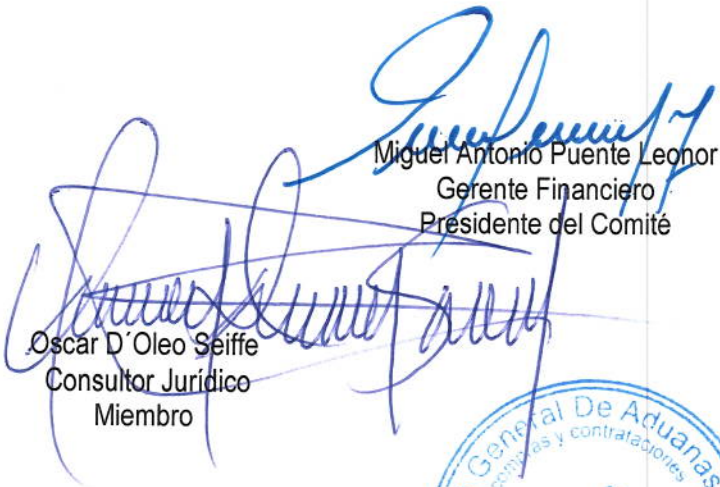 Miguel Antonio Puente Leonor
Gerente Financiero
Presidente del Comité
Oscar D´Oleo Seiffe
Consultor Jurídico
Miembro
General De Aduanas
compras y contrataciones